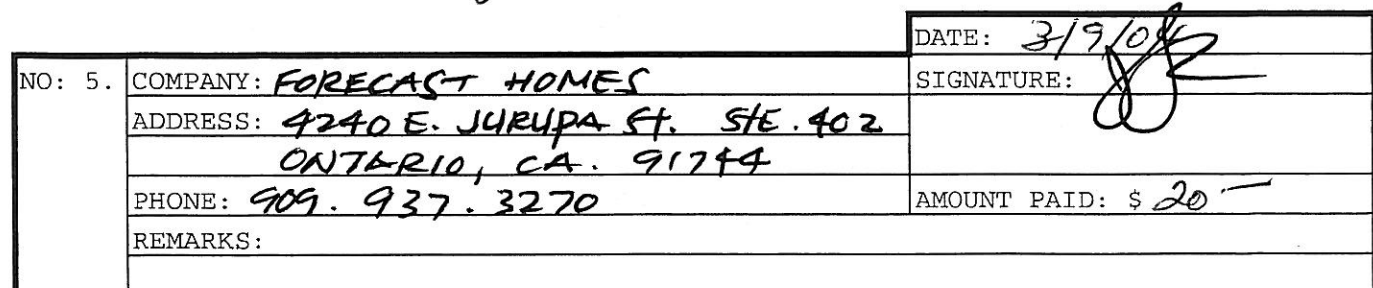 DATE: 3/9/04
NO: 5. COMPANY: FORECAST HOMES SIGNATURE:
ADDRESS: 4240 E. JURUPA St. StE. 402
ONTARIO, CA. 91744
PHONE: 909. 937. 3270 AMOUNT PAID: $ 20 —
REMARKS: